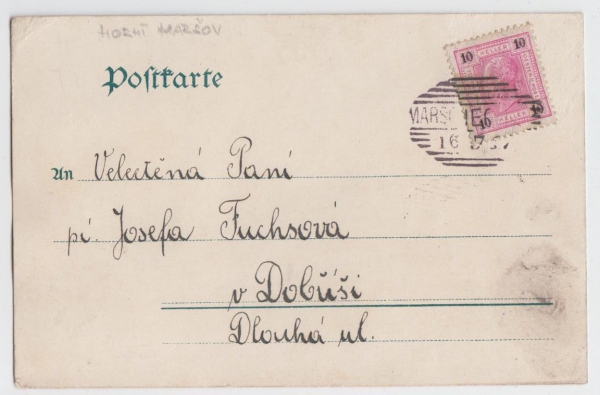 HORNÍ MARŠOV
Postkarte
10 10
HELLER
10 10
HELLER
MARSC
16
An Velectěná Paní
pí. Josefa Fuchsová
v Dobříši
Dlouhá ul.